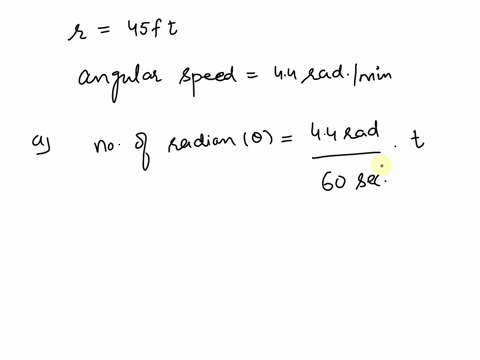 r = 45ft
angular speed = 4.4 rad./min
a) no. of radian (θ) = 4.4 rad / 60 sec. . t